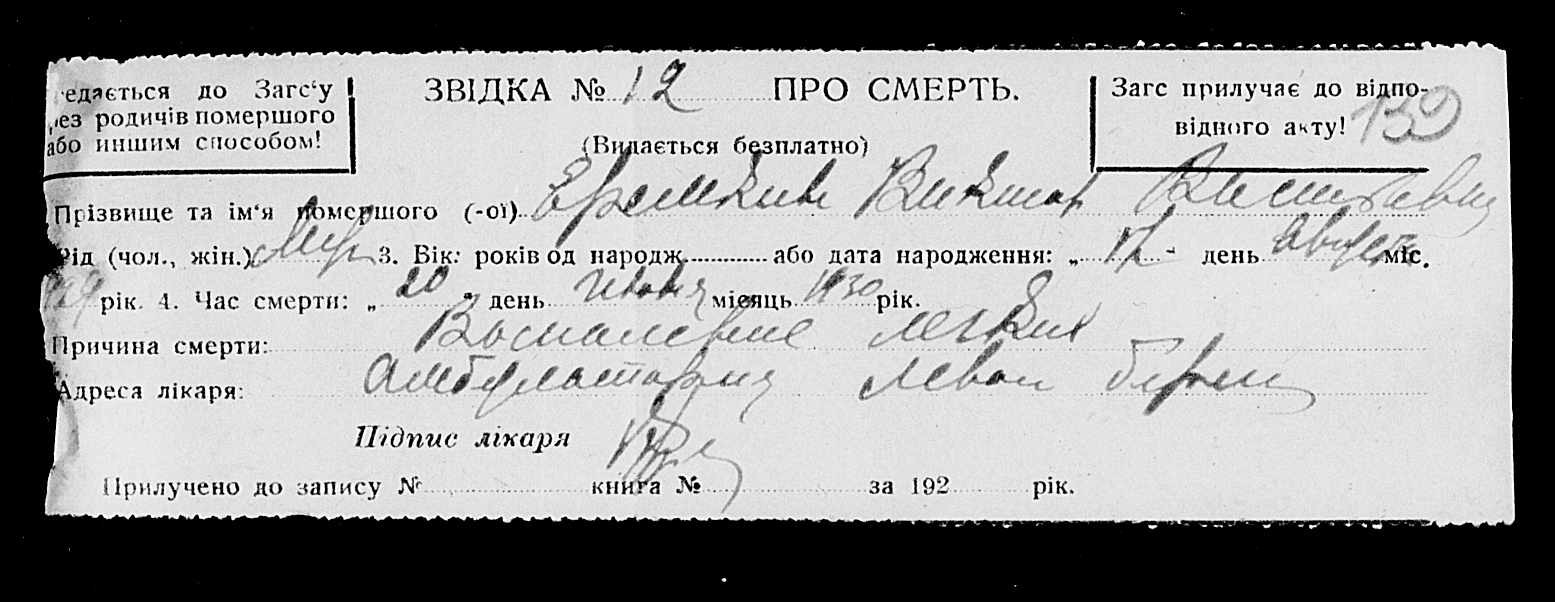 редається до Загс‘у
рез родичів помершого
або иншим способом!
ЗВІДКА № 12 ПРО СМЕРТЬ.
(Видається безплатно)
Загс прилучає до відпо-
відного акту! 132
Прізвище та ім‘я помершого (-ої) Еремкин Виктор
Рід (чол., жін.) Муж 3. Вік: років од народж. або дата народження: „ 17 - день Августа міс.
929 рік. 4. Час смерти: „ 20 " день Июня місяць 1930 рік.
Причина смерти: Воспаление легких
Адреса лікаря: Амбулатория
Підпис лікаря
Прилучено до запису № книга № за 192 рік.